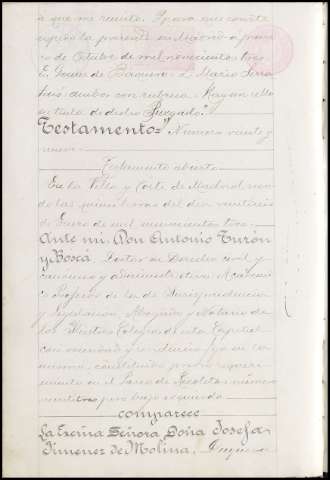 á que me remito. Y para que conste
expido la presente en Madrid á prime
ro de Octubre de mil novecientos tres
E. Gómez de Baquero = L. Mario Serra
= autos con rubrica = Hay un sello
en tinta de dicho Juzgado."
Testamento = "Número veinte y
nueve
Testamento abierto
En la Villa y Corte de Madrid
á las quince horas del dia veintiseis
de Enero de mil novecientos tres.
Ante mi, Don Antonio Turón
y Boscá, Doctor en Derecho civil y
canónico y administrativo, Académi
co Profesor de la de Jurisprudencia
y Legislacion, Abogado y Notario de
los Ilustres Colegios de esta Capital
con vecindad y residencia en la
misma, constituido previo requeri
miento en el Paseo de Recoletos número
veintitres piso bajo izquierda
comparece
La Excma Señora Doña Josefa
Jimenez de Molina, Duquesa